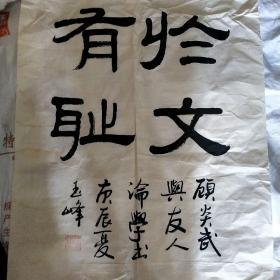 於文
有耻
顧炎武
與友人
論學书
庚辰夏
玉峰
特